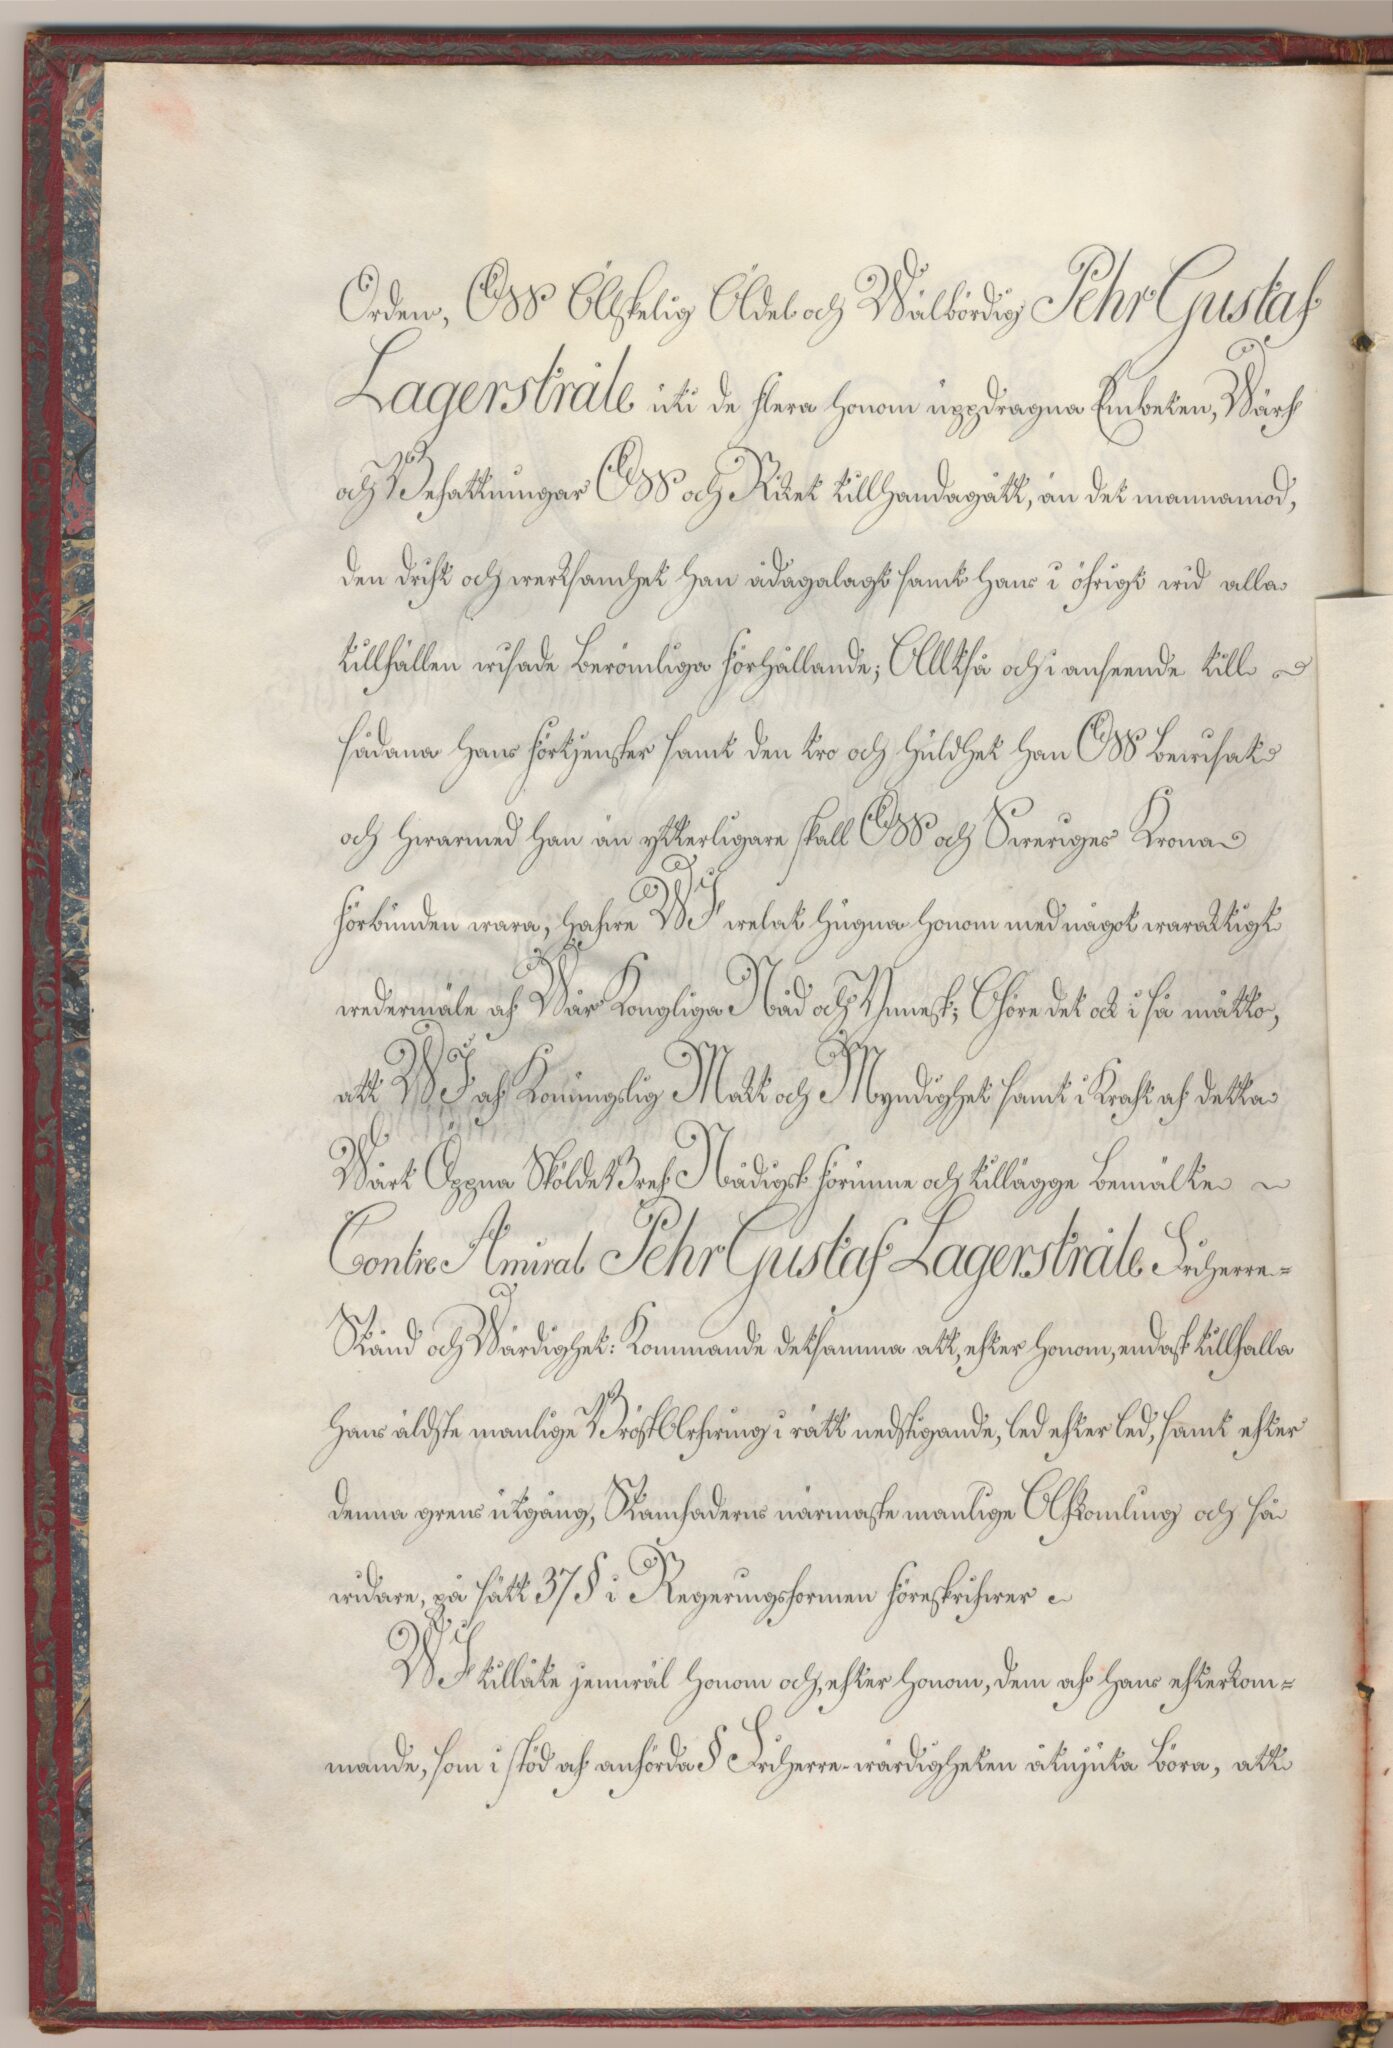 Orden, Oss Älskelig Ädel och Wälbördig Pehr Gustaf
Lagerstråle uti de flera honom uppdragna Embeten, Wärf
och Befattningar Oss och Riket tillhandagått, än det mannamod,
den drift och werksamhet han ådagalagt samt hans i öfrigt wid alla
tillfällen wisade berömliga förhållande; Alltså och i anseende till
sådana hans förtjenster samt den tro och huldhet han Oss bewisat
och hwarmed han än ytterligare skall Oss och Sweriges Krona
förbunden wara, hafwe Wi welat hugna honom med något waraktigt
wedermäle af Wår Kongliga Nåd och Ynnest; Göre det ock i så måtto,
att Wi af Konungslig Makt och Myndighet samt i Kraft af detta
Wårt Öppna Sköldebref Nådigst förunne och tillägge bemälte
Contre Amiral Pehr Gustaf Lagerstråle Friherre-
Stånd och Wärdighet: Kommande detsamma att, efter honom, endast tillfalla
hans äldste manlige BröstArfwing i rätt nedstigande, led efter led, samt efter
denna grens utgång, Stamfaderns närmaste manlige Afkomling och så
widare, på sätt 37 § i Regeringsformen föreskrifwer
Wi tillåte jemwäl honom och, efter honom, dem af hans efterkom-
mande, som i stöd af anförda § Friherre-wärdigheten åtnjuta böra, att